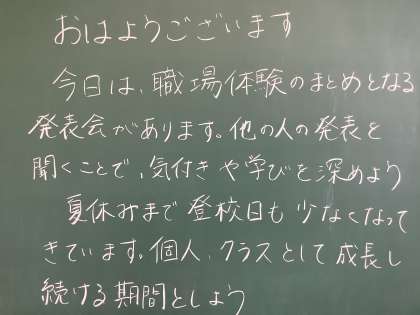 おはようございます
今日は、職場体験のまとめとなる
発表会があります。他の人の発表を
聞くことで、気付きや学びを深めよう
夏休みまで登校日も少なくなって
きています。個人、クラスとして成長し
続ける期間としよう